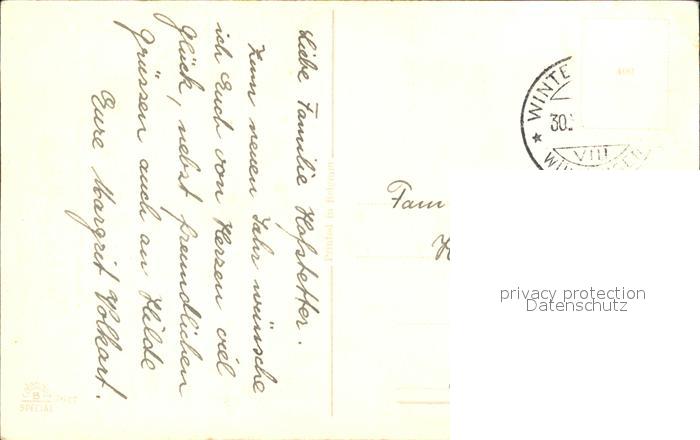 Liebe Familie Hofstetter.
Zum neuen Jahr wünsche
ich Euch von Herzen viel
Glück, nebst freundlichen
Grüssen auch an Hilde
Eure Margrit Volkart.
Printed in Belgium
WINTE
30.
VIII
Fam
privacy protection
Datenschutz
B
SPECIAL